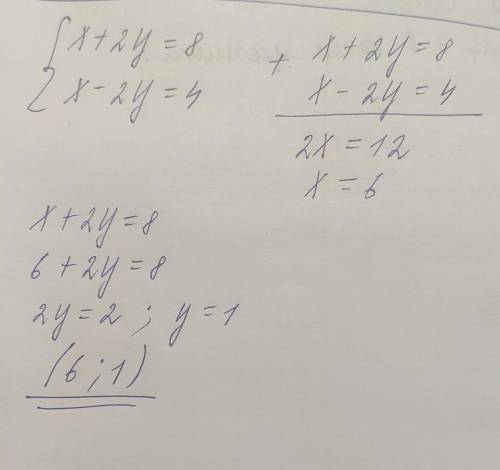 { x + 2y = 8
x - 2y = 4
+ x + 2y = 8
x - 2y = 4
2x = 12
x = 6
x + 2y = 8
6 + 2y = 8
2y = 2 ; y = 1
(6 ; 1)